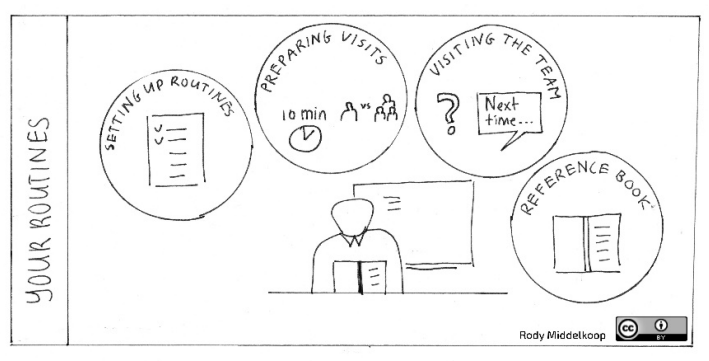 YOUR ROUTINES
SETTING UP ROUTINES
PREPARING VISITS
10 min
vs
VISITING THE TEAM
?
Next
time...
REFERENCE BOOK
Rody Middelkoop
cc
BY